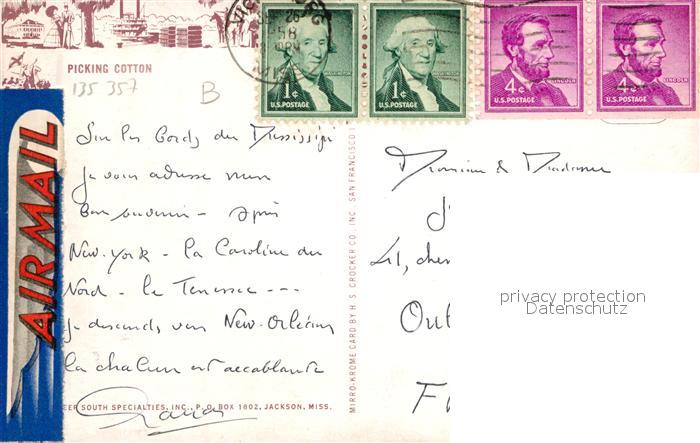 VICKSBURG
1¢
U.S. POSTAGE
WASHINGTON
1¢
U.S. POSTAGE
4¢
U.S. POSTAGE
LINCOLN
4¢
U.S. POSTAGE
LINCOLN
PICKING COTTON
135 357
B
AIR MAIL
Sur les bords du Mississipi
je vous adresse mon
bon souvenir - après
New-York - la Caroline du
Nord - le Tenessee ---
je descends vers New-Orléans
la chaleur est accablante
SOUTH SPECIALTIES, INC., P. O. BOX 1802, JACKSON, MISS.
MIRRO-KROME CARD BY H. S. CROCKER CO., INC. SAN FRANCISCO
Monsieur & Madame
41, chem
Out
privacy protection
Datenschutz